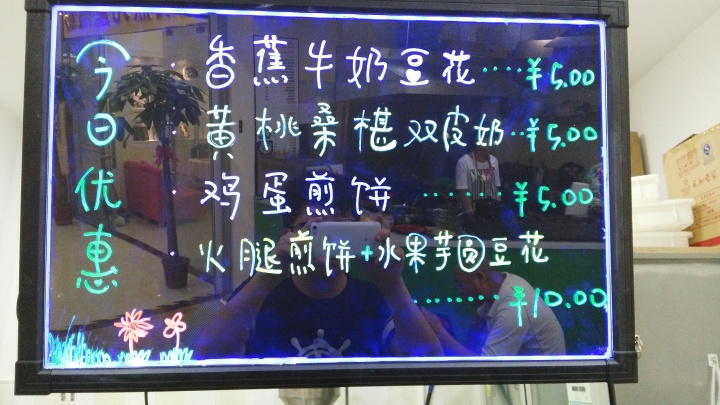 今日优惠
· 香蕉牛奶豆花····¥5.00
· 黄桃桑椹双皮奶··¥5.00
· 鸡蛋煎饼 ········¥5.00
· 火腿煎饼+水果芋圆豆花
·········¥10.00